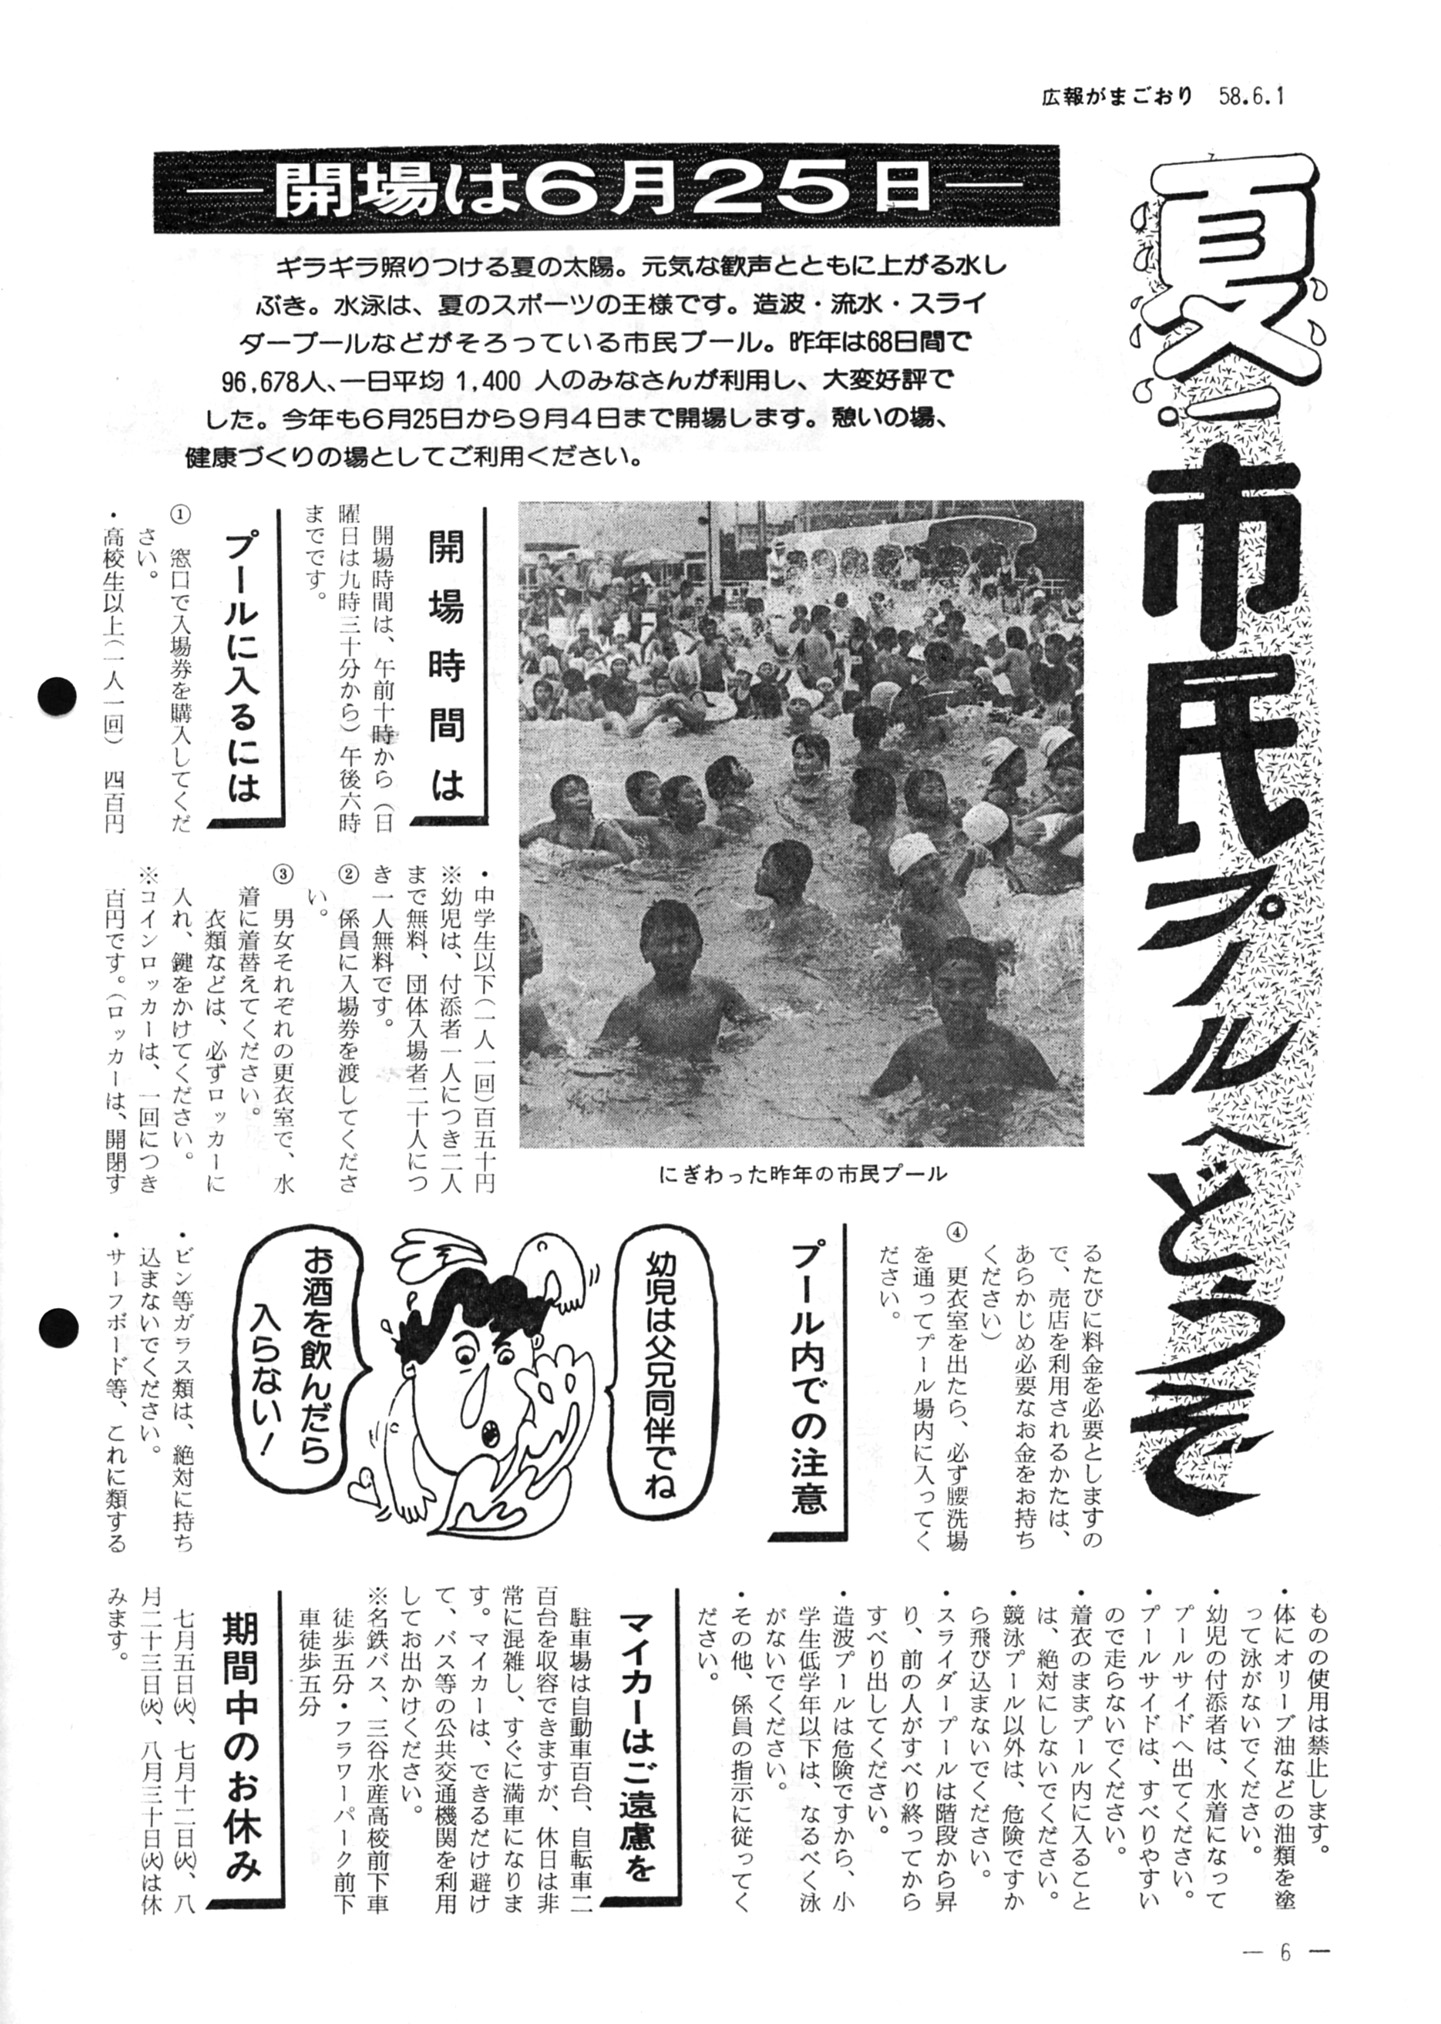 広報がまごおり 58.6.1
夏―市民プールへどうぞ
―開場は6月25日―
ギラギラ照りつける夏の太陽。元気な歓声とともに上がる水し
ぶき。水泳は、夏のスポーツの王様です。造波・流水・スライ
ダープールなどがそろっている市民プール。昨年は68日間で
96,678人、一日平均 1,400 人のみなさんが利用し、大変好評で
した。今年も6月25日から9月4日まで開場します。憩いの場、
健康づくりの場としてご利用ください。
にぎわった昨年の市民プール
開場時間は
開場時間は、午前十時から(日
曜日は九時三十分から)午後六時
までです。
プールに入るには
① 窓口で入場券を購入してくだ
さい。
・高校生以上(一人一回) 四百円
・中学生以下(一人一回)百五十円
※幼児は、付添者一人につき二人
まで無料、団体入場者二十人につ
き一人無料です。
② 係員に入場券を渡してくださ
い。
③ 男女それぞれの更衣室で、水
着に着替えてください。
衣類などは、必ずロッカーに
入れ、鍵をかけてください。
※コインロッカーは、一回につき
百円です。(ロッカーは、開閉す
るたびに料金を必要としますの
で、売店を利用されるかたは、
あらかじめ必要なお金をお持ち
ください)
④ 更衣室を出たら、必ず腰洗場
を通ってプール場内に入ってく
ださい。
プール内での注意
幼児は父兄同伴でね
お酒を飲んだら
入らない!
・ビン等ガラス類は、絶対に持ち
込まないでください。
・サーフボード等、これに類する
ものの使用は禁止します。
・体にオリーブ油などの油類を塗
って泳がないでください。
・幼児の付添者は、水着になって
プールサイドへ出てください。
・プールサイドは、すべりやすい
ので走らないでください。
・着衣のままプール内に入ること
は、絶対にしないでください。
・競泳プール以外は、危険ですか
ら飛び込まないでください。
・スライダープールは階段から昇
り、前の人がすべり終ってから
すべり出してください。
・造波プールは危険ですから、小
学生低学年以下は、なるべく泳
がないでください。
・その他、係員の指示に従ってく
ださい。
マイカーはご遠慮を
駐車場は自動車百台、自転車二
百台を収容できますが、休日は非
常に混雑し、すぐに満車になりま
す。マイカーは、できるだけ避け
て、バス等の公共交通機関を利用
してお出かけください。
※名鉄バス、三谷水産高校前下車
徒歩五分・フラワーパーク前下
車徒歩五分
期間中のお休み
七月五日㈫、七月十二日㈫、八
月二十三日㈫、八月三十日㈫は休
みます。
― 6 ―